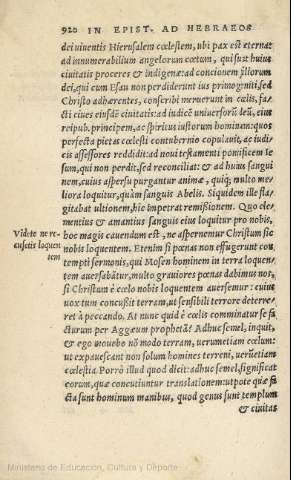 920 IN EPIST. AD HEBRAEOS
dei viuentis Hierusalem cœlestem, ubi pax est æterna:
ad innumerabilium angelorum cœtum, qui sunt huius
ciuitatis proceres & indigenæ: ad concionem filiorum
dei, qui cum Esau non perdiderunt ius primogeniti, sed
Christo adhærentes, conscribi meruerunt in cœlis, fa-
cti ciues eiusdē ciuitatis: ad iudicē uniuersorū deū, eius
reipub. principem, ac spiritus iustorum hominum: quos
perfecta pietas cœlesti contubernio copulauit, ac iudi-
cis assessores reddidit: ad noui testamenti pontificem Ie-
sum, qui non perdit, sed reconciliat: & ad huius sangui
nem, cuius aspersu purgantur animæ, quiq; multo me-
liora loquitur, quàm sanguis Abelis. Siquidem ille fla-
gitabat ultionem, hic impetrat remissionem. Quo cle-
mentius & amantius sanguis eius loquitur pro nobis,
hoc magis cauendum est, ne aspernemur Christum sic
Videte ne re-
cusetis loquen
tem
nobis loquentem. Etenim si pœnas non effugerunt con
tempti sermonis, qui Mosen hominem in terra loquen-
tem auersabātur, multo grauiores pœnas dabimus nos,
si Christum è cœlo nobis loquentem auersemur: cuius
uox tum concussit terram, ut sensibili terrore deterre-
ret à peccando. At nunc quid è cœlis comminatur se fa
cturum per Aggæum prophetā? Adhuc semel, inquit,
& ego mouebo nō modo terram, uerumetiam cœlum:
ut expauescant non solum homines terreni, uerūetiam
cœlestia. Porrò illud quod dicit: adhuc semel, significat
eorum, quæ concutiuntur translationem: utpote quæ fa
cta sunt hominum manibus, quod genus sunt templum
& ciuitas
Ministerio de Educación, Cultura y Deporte